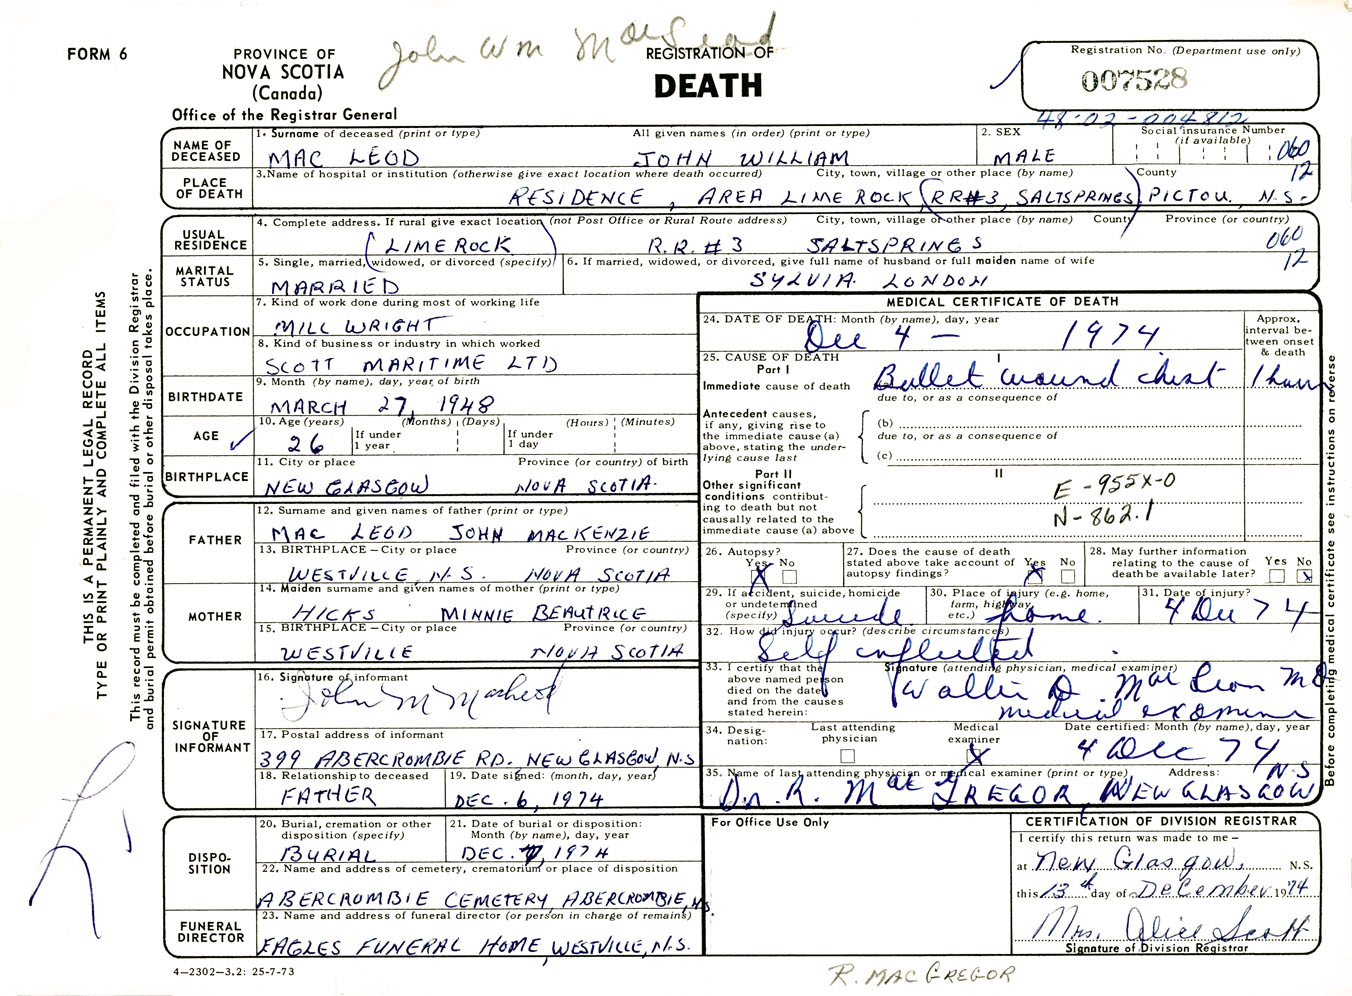 John Wm MacLeod
FORM 6
PROVINCE OF
NOVA SCOTIA
(Canada)
Office of the Registrar General
REGISTRATION OF
DEATH
Registration No. (Department use only)
007528
48-02-004812
NAME OF DECEASED
1. Surname of deceased (print or type) All given names (in order) (print or type)
MAC LEOD JOHN WILLIAM
2. SEX
MALE
Social insurance Number
(if available)
060
12
PLACE OF DEATH
3. Name of hospital or institution (otherwise give exact location where death occurred) City, town, village or other place (by name) County
RESIDENCE, AREA LIME ROCK (RR#3, SALTSPRINGS) PICTOU, N.S.
USUAL RESIDENCE
4. Complete address. If rural give exact location (not Post Office or Rural Route address) City, town, village or other place (by name) County Province (or country)
(LIMEROCK) R.R. #3 SALTSPRINGS
060
12
MARITAL STATUS
5. Single, married, widowed, or divorced (specify)
MARRIED
6. If married, widowed, or divorced, give full name of husband or full maiden name of wife
SYLVIA LONDON
OCCUPATION
7. Kind of work done during most of working life
MILL WRIGHT
8. Kind of business or industry in which worked
SCOTT MARITIME LTD
BIRTHDATE
9. Month (by name), day, year, of birth
MARCH 27, 1948
AGE
10. Age (years) (Months) (Days) (Hours) (Minutes)
26 If under 1 year If under 1 day
BIRTHPLACE
11. City or place Province (or country) of birth
NEW GLASGOW NOVA SCOTIA.
FATHER
12. Surname and given names of father (print or type)
MAC LEOD JOHN MACKENZIE
13. BIRTHPLACE – City or place Province (or country)
WESTVILLE, N.S. NOVA SCOTIA
MOTHER
14. Maiden surname and given names of mother (print or type)
HICKS MINNIE BEAUTRICE
15. BIRTHPLACE – City or place Province (or country)
WESTVILLE NOVA SCOTIA
SIGNATURE OF INFORMANT
16. Signature of informant
John M MacLeod
17. Postal address of informant
399 ABERCROMBIE RD. NEW GLASGOW, N.S
18. Relationship to deceased
FATHER
19. Date signed: (month, day, year)
DEC. 6, 1974
DISPOSITION
20. Burial, cremation or other disposition (specify)
BURIAL
21. Date of burial or disposition: Month (by name), day, year
DEC. 7, 1974
22. Name and address of cemetery, crematorium or place of disposition
ABERCROMBIE CEMETERY, ABERCROMBIE, N.S.
FUNERAL DIRECTOR
23. Name and address of funeral director (or person in charge of remains)
EAGLES FUNERAL HOME, WESTVILLE, N.S.
4—2302—3.2: 25-7-73
MEDICAL CERTIFICATE OF DEATH
24. DATE OF DEATH: Month (by name), day, year
Dec 4 – 1974
Approx. interval between onset & death
25. CAUSE OF DEATH
Part I I
Immediate cause of death (a) Bullet wound chest 1 hour
due to, or as a consequence of
Antecedent causes, if any, giving rise to the immediate cause (a) above, stating the underlying cause last
(b)
due to, or as a consequence of
(c)
Part II II
Other significant conditions contributing to death but not causally related to the immediate cause (a) above
E-955X-0
N-862.1
26. Autopsy?
Yes No
X
27. Does the cause of death stated above take account of autopsy findings?
Yes No
X
28. May further information relating to the cause of death be available later?
Yes No
X
29. If accident, suicide, homicide or undetermined (specify)
Suicide
30. Place of injury (e.g. home, farm, highway, etc.)
home.
31. Date of injury?
4 Dec 74
32. How did injury occur? (describe circumstances)
Self inflicted
33. I certify that the above named person died on the date and from the causes stated herein:
Signature (attending physician, medical examiner)
MD
medical examiner
34. Designation:
Last attending physician
Medical examiner
X
Date certified: Month (by name), day, year
4 Dec 74
35. Name of last attending physician or medical examiner (print or type) Address:
Dr. R. MacGREGOR, NEW GLASGOW N.S
For Office Use Only
CERTIFICATION OF DIVISION REGISTRAR
I certify this return was made to me –
at New Glasgow, N.S.
this 13th day of December 1974
Mrs. Alice Scott
Signature of Division Registrar
R. MACGREGOR
THIS IS A PERMANENT LEGAL RECORD
TYPE OR PRINT PLAINLY AND COMPLETE ALL ITEMS
This record must be completed and filed with the Division Registrar
and burial permit obtained before burial or other disposal takes place.
Before completing medical certificate see instructions on reverse